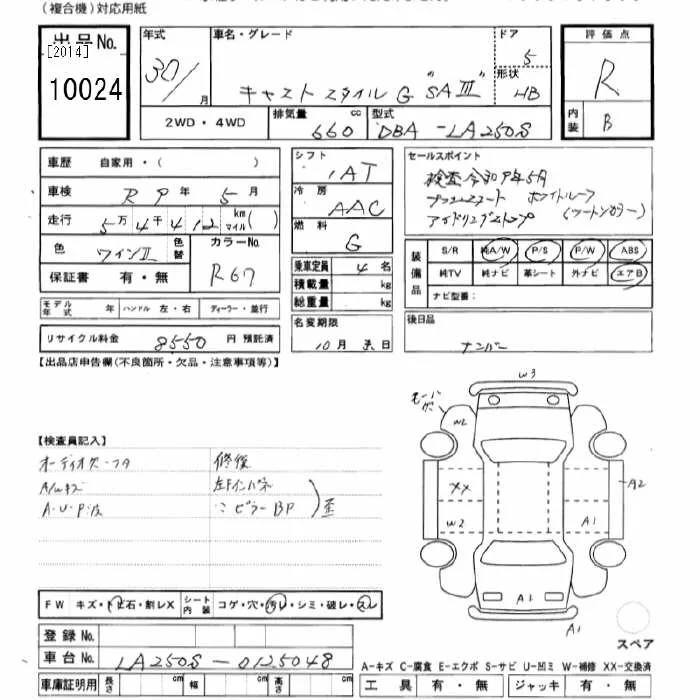 (複合機)対応用紙
出品No.
[2014]
10024
年式
30/
月
車名・グレード
キャスト スタイル G "SAⅢ"
ドア
5
形状
HB
評価点
R
内装
B
2WD・4WD
排気量
660
cc
型式
DBA-LA250S
車歴 自家用・( )
車検 R9年5月
走行 5万4千412km マイル( )
色 ワインⅡ
色替
カラーNo.
R67
保証書 有・無
シフト
IAT
冷房
AAC
燃料
G
乗車定員 4名
積載量 kg
総重量 kg
セールスポイント
検査令和9年5月
ホワイトルーフ
アイドリングストップ (ツートンカラー)
装備品
S/R 純A/W P/S P/W ABS
純TV 純ナビ 革シート 外ナビ エアB
ナビ型番:
モデル年式 年 ハンドル 左・右 ディーラー・並行
リサイクル料金 8550 円 預託済
名変期限
10月末日
後日品
ナンバー
【出品店申告欄(不良箇所・欠品・注意事項等)】
【検査員記入】
修復
A/Wキズ
左Fインパネ
A・U・P・
ピラーBP
歪
W3
W2
XX
W2
A2
A1
A1
A1
スペア
FW キズ・トビ石・割レX
シート内装
コゲ・穴・汚レ・シミ・破レ・スレ
登録No.
車台No. LA250S-0125048
車庫証明用 長さ cm 幅 cm 高さ cm
A-キズ C-腐食 E-エクボ S-サビ U-凹ミ W-補修 XX-交換済
工具 有・無 ジャッキ 有・無